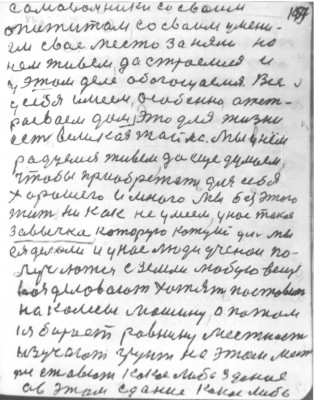 самовольники со своим
опытитам со своим умени-
ем свае место заняли но
нем живем да строемся и
у этом деле обогощаемся. Все
у себя имеем, особенно отст-
раеваем дом, это для жизни
есть великая тайна. Мы у нем
радуемся живем да еще думаем,
чтобы приобретать для себя
хорошего и много мы без этого
жить ни как не умеем, у нас такая
завычка которую
сделали и у нас люди ученаи по-
лучаются с земли любую вещь
хотят поставить
на колеса машину, а потом
бирает равнину местность
изучают грунт на этом мест
и ставют какое либо здание
а в этом здание какое либо